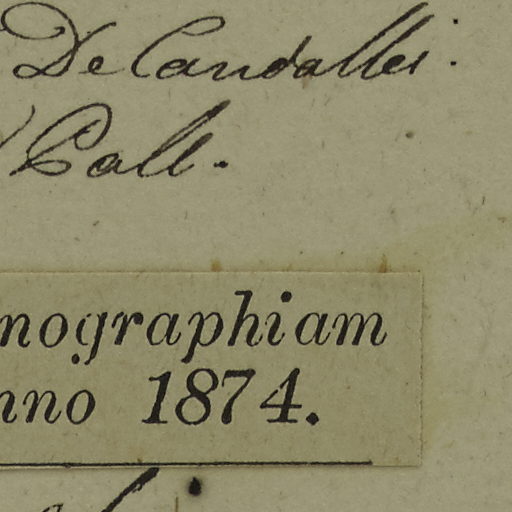 DeCandollei.
Coll.
nographiam
nno 1874.